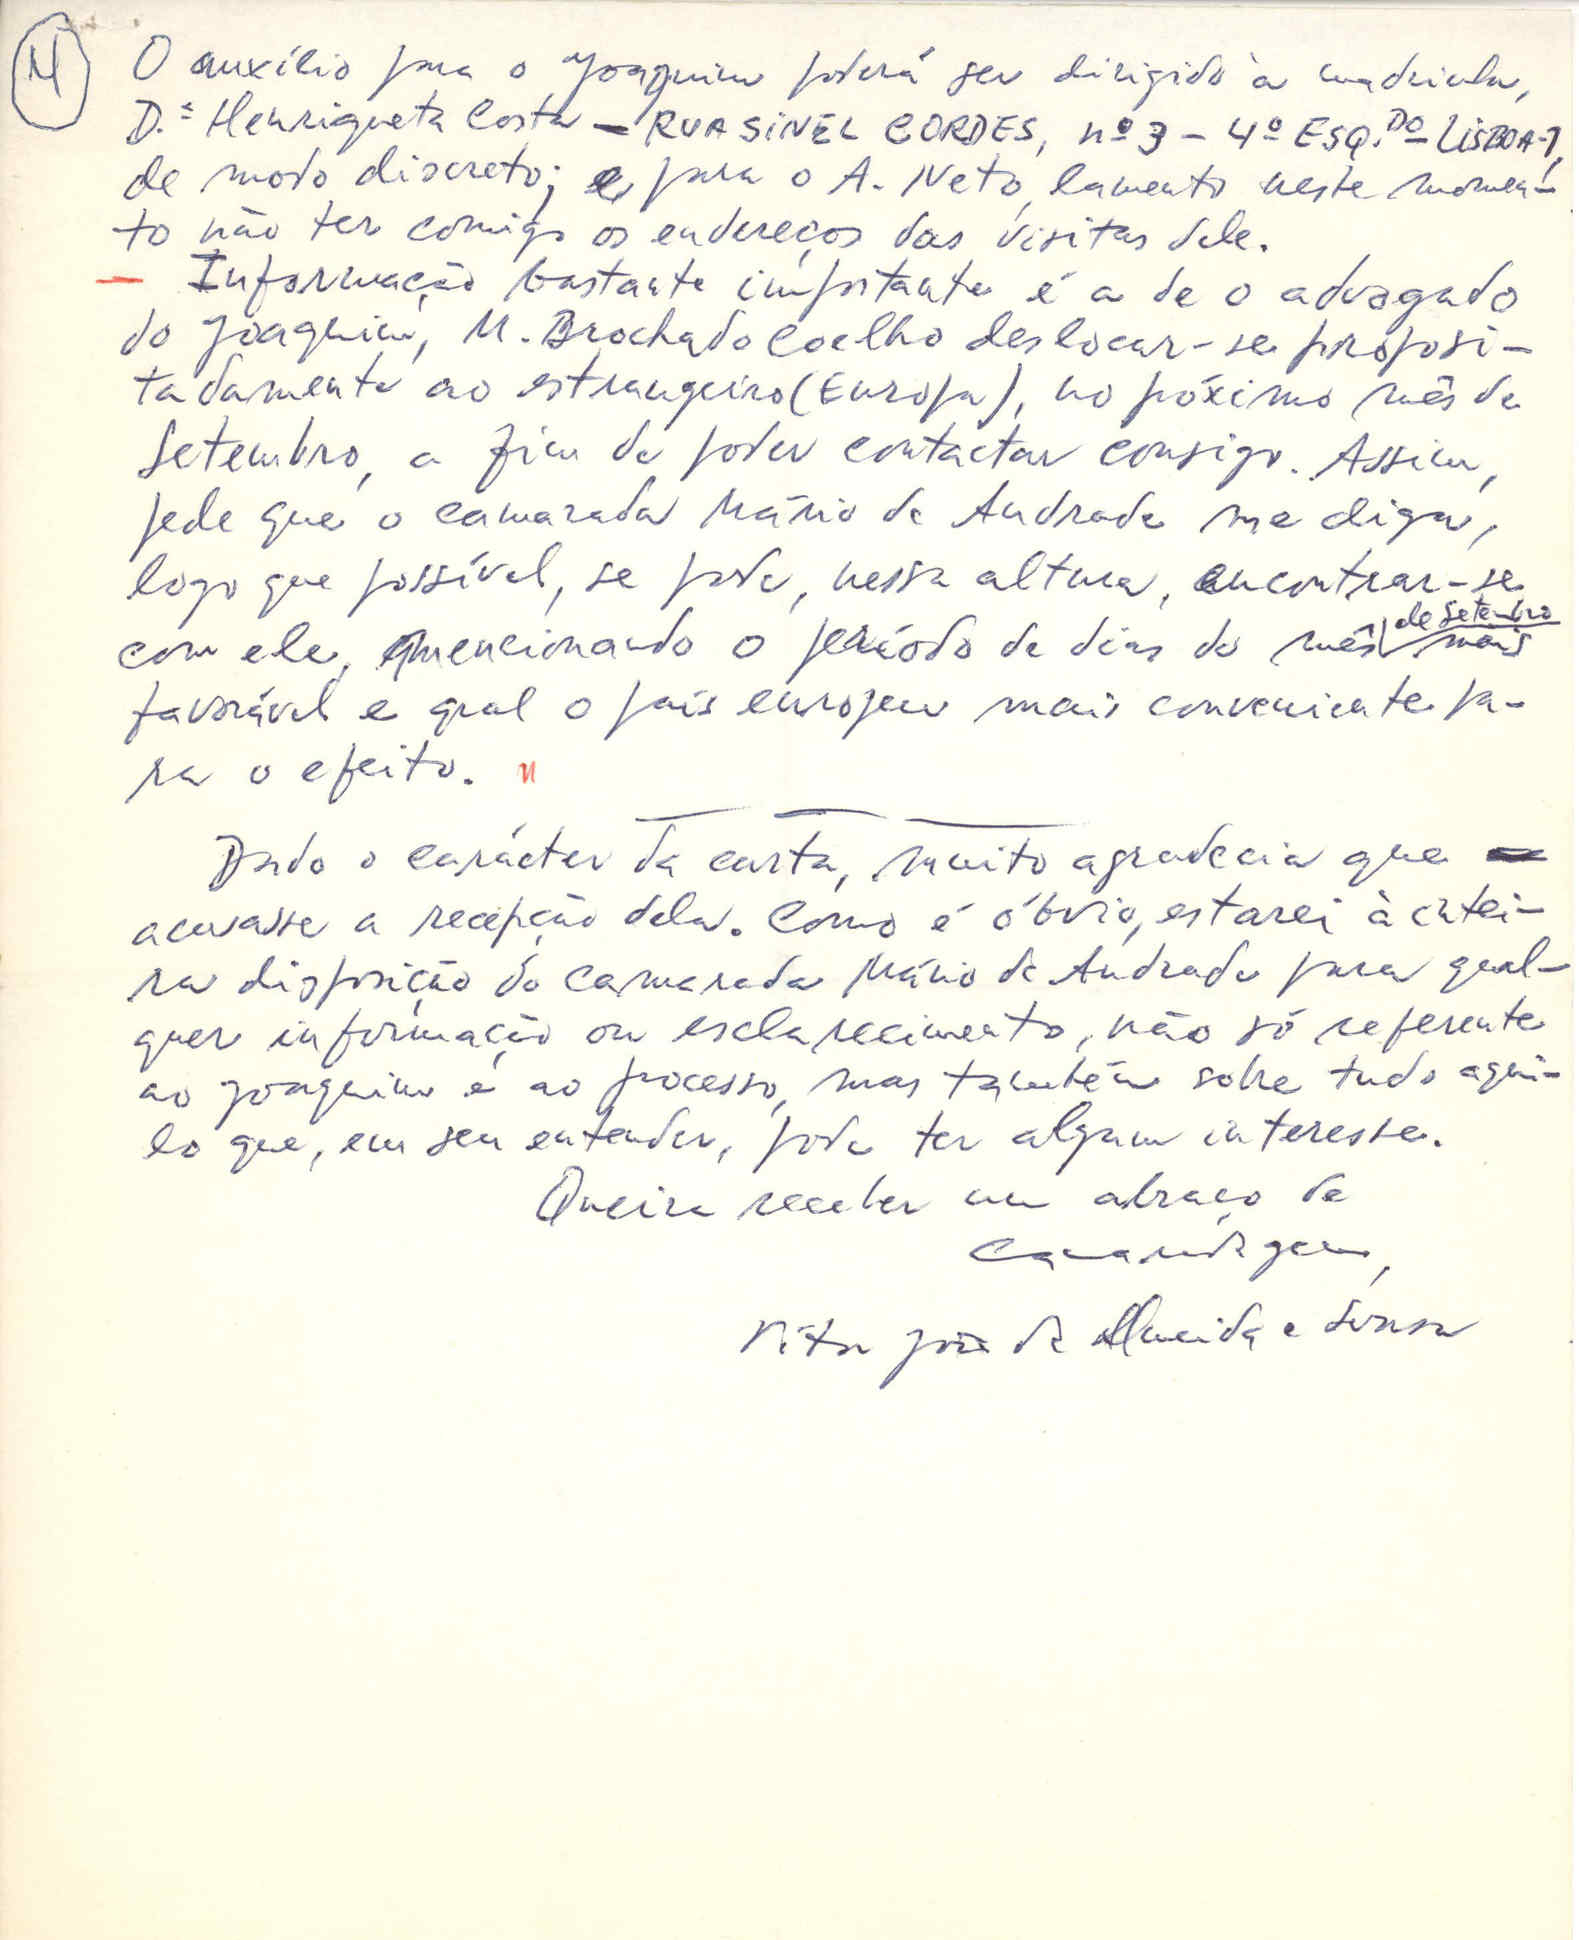 4
O auxílio para o Joaquim poderá ser dirigido à madrinha,
D.ª Henriqueta Costa — RUA SINEL CORDES, nº 3 – 4º ESQ.DO – LISBOA-1,
de modo discreto; e para o A. Neto, lamento neste momen-
to não ter comigo os endereços das visitas dele.
— Informação bastante importante é a de o advogado
do Joaquim, M. Brochado Coelho deslocar-se proposi-
tadamente ao estrangeiro (Europa), no póximo mês de
Setembro, a fim de poder contactar consigo. Assim,
pede que o camarada Mário de Andrade me diga,
logo que possível, se pode, nessa altura, encontrar-se
com ele, mencionando o período de dias do mês de Setembro mais
favorável e qual o país europeu mais conveniente pa-
ra o efeito. "
Dado o carácter da carta, muito agradecia que
acusasse a recepção dela. Como é óbvio, estarei à intei-
ra disposição do camarada Mário de Andrade para qual-
quer informação ou esclarecimento, não só referente
ao Joaquim e ao processo, mas também sobre tudo aqui-
lo que, em seu entender, pode ter algum interesse.
Queira receber um abraço de
camaradagem,
Vítor José de Almeida e Sousa